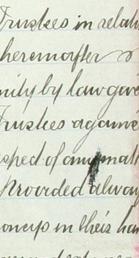 Trustees in relati
hereinafter
mity by law gove
Trustees against
spect of any matt
Provided alway
moneys in their han